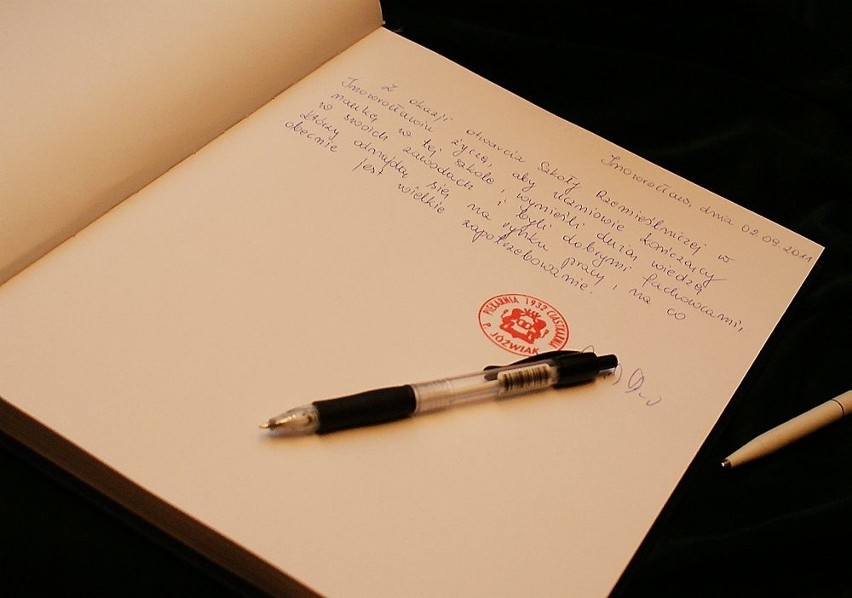 Inowrocław, dnia 02.09.2011
Z okazji otwarcia Szkoły Rzemieślniczej w
Inowrocławiu życzę, aby uczniowie kończący
naukę w tej szkole, wynieśli dużą wiedzę
w swoich zawodach i byli dobrymi fachowcami,
którzy odnajdą się na rynku pracy, na co
obecnie jest wielkie zapotrzebowanie.
PIEKARNIA 1937 CIASTKARNIA
P. JÓŹWIAK